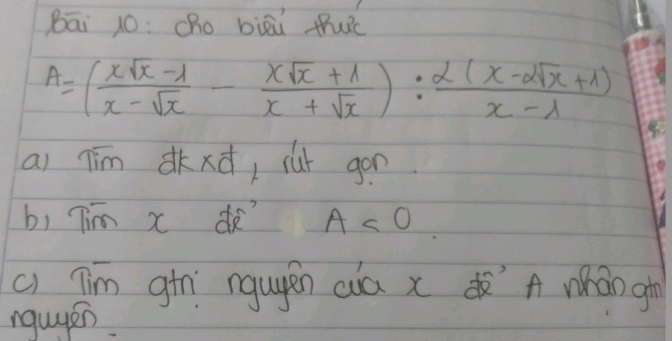 Bài 10: cho biểu thức
A = ( (x√x - 1)/(x - √x) - (x√x + 1)/(x + √x) ) : 2(x - 2√x + 1)/(x - 1)
a) Tìm đkxđ, rút gọn.
b) Tìm x để A < 0.
c) Tìm gtrị nguyên của x để A nhận gtrị
nguyên.